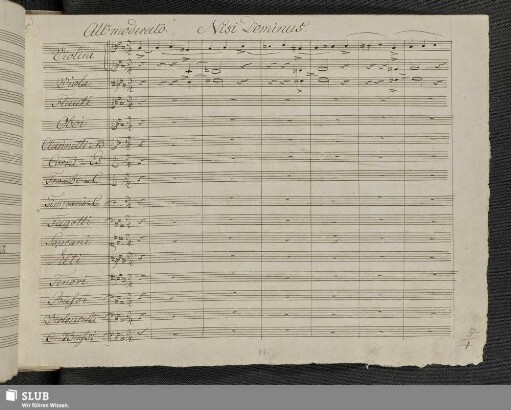 All° moderato. Nisi Dominus.
Violini
Viola
Flauti
Oboi
Clarinetti in B
Corni in Es
Trombe in C
Timpani in C
Fagotti
Soprani
Alti
Tenori
Bassi
Violoncelli
C. Bassi
SLUB
Wir führen Wissen.